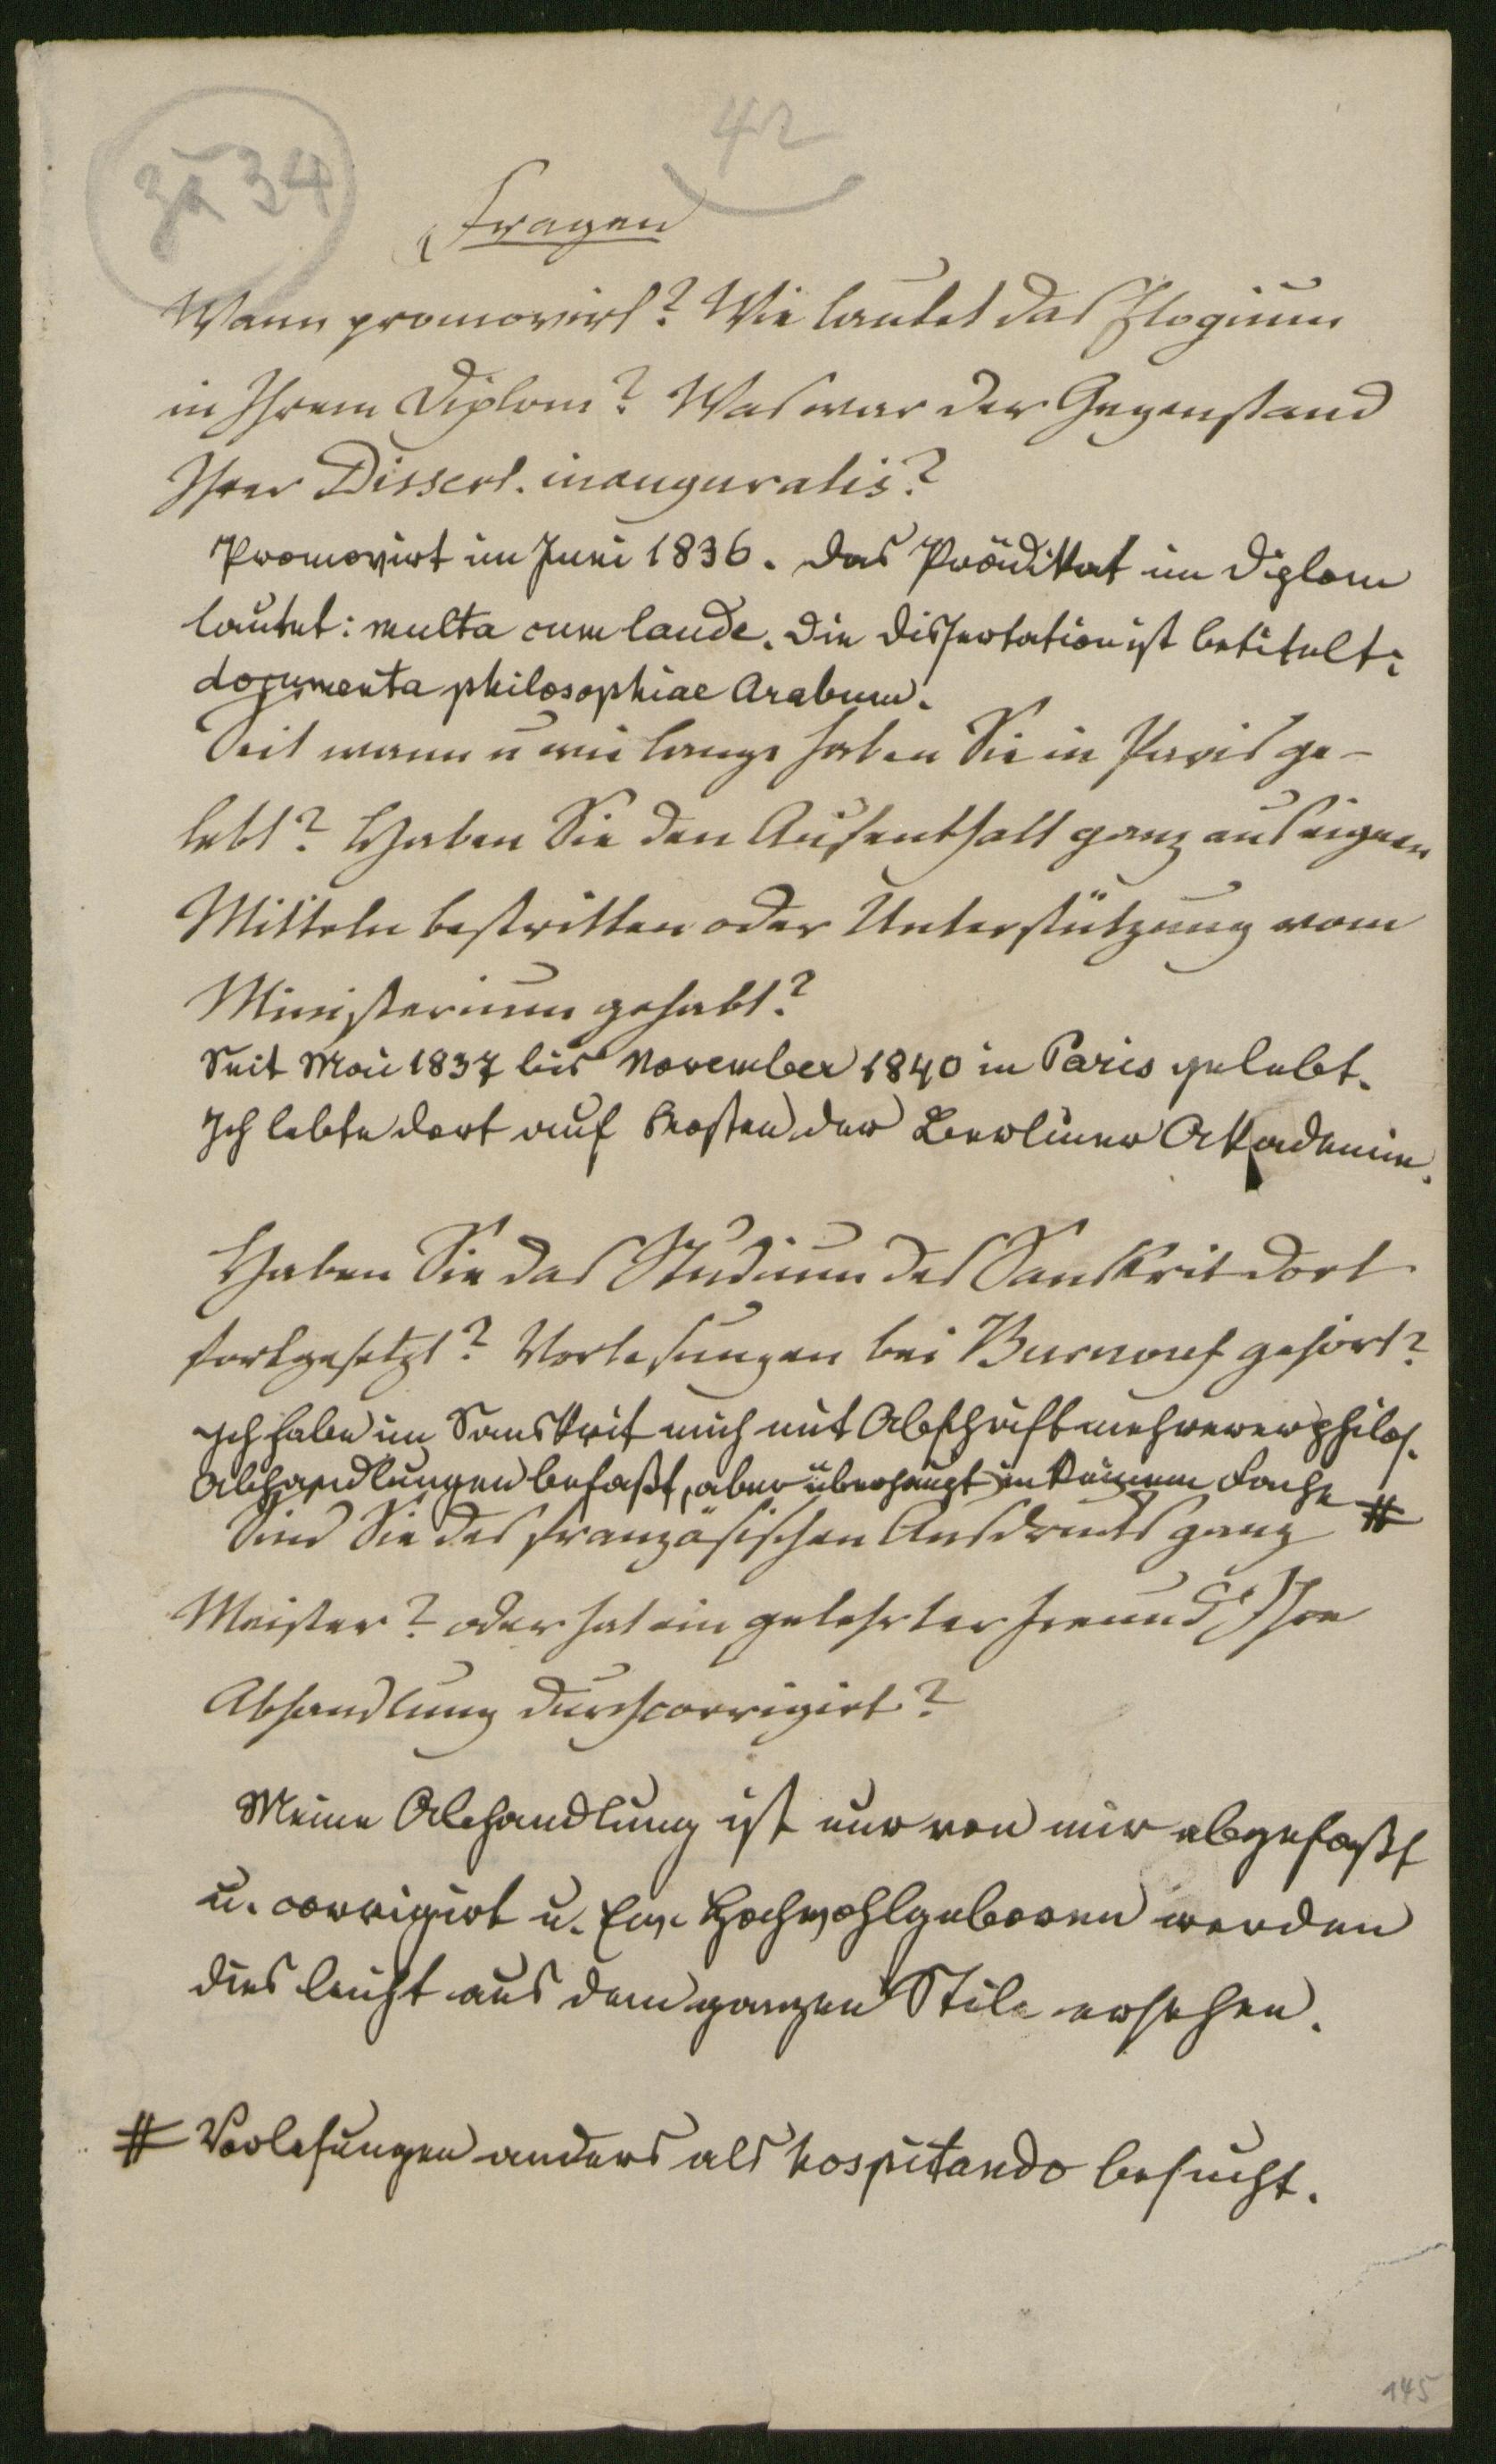 42
zu 34
Fragen
Wann promovirt? Wie lautet das Elogium
in Ihrem Diplom? Was war der Gegenstand
Ihrer Dissert. inauguralis?
Promovirt im Juni 1836. Das Prädikat im Diplom
lautet: multa cum laude. Die Dissertation ist betitelt:
documenta philosophiae Arabum.
Seit wann u wie lange haben Sie in Paris ge-
lebt? Haben Sie den Aufenthalt ganz aus eignen
Mitteln bestritten oder Unterstützung vom
Ministerium gehabt?
Seit Mai 1837 bis November 1840 in Paris gelebt.
Ich lebte dort auf Kosten der Berliner Akademie.
Haben Sie das Studium des Sanskrit dort
fortgesetzt? Vorlesungen bei Burnouf gehört?
Ich habe im Sanskrit mich mit Abschrift mehrerer philos.
Abhandlungen befaßt, aber überhaupt in keinem Fache #
Sind Sie des französischen Ausdrucks ganz
Meister? oder hat ein gelehrter Freund Ihre
Abhandlung durchcorrigirt?
Meine Abhandlung ist nur von mir abgefaßt
u. corrigirt u. Ew. Hochwohlgeboren werden
dies leicht aus dem ganzen Stile ersehen.
# Vorlesungen anders als hospitando besucht.
145